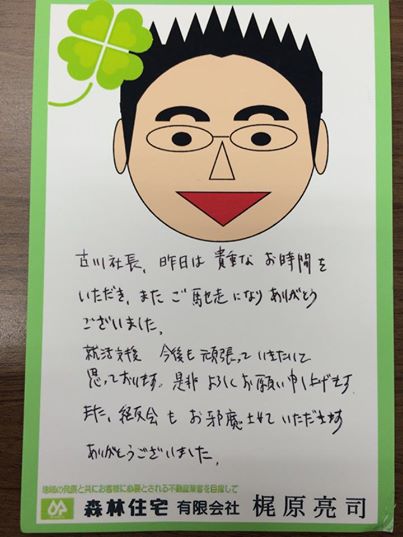 古川社長、昨日は貴重なお時間を
いただき、またご馳走になりありがとう
ございました。
就活支援 今後も頑張っていきたいと
思っております。是非よろしくお願い申し上げます
また、経友会もお邪魔させていただきます
ありがとうございました。
地域の発展と共にお客様に必要とされる不動産業者を目指して
森林住宅 有限会社 梶原亮司